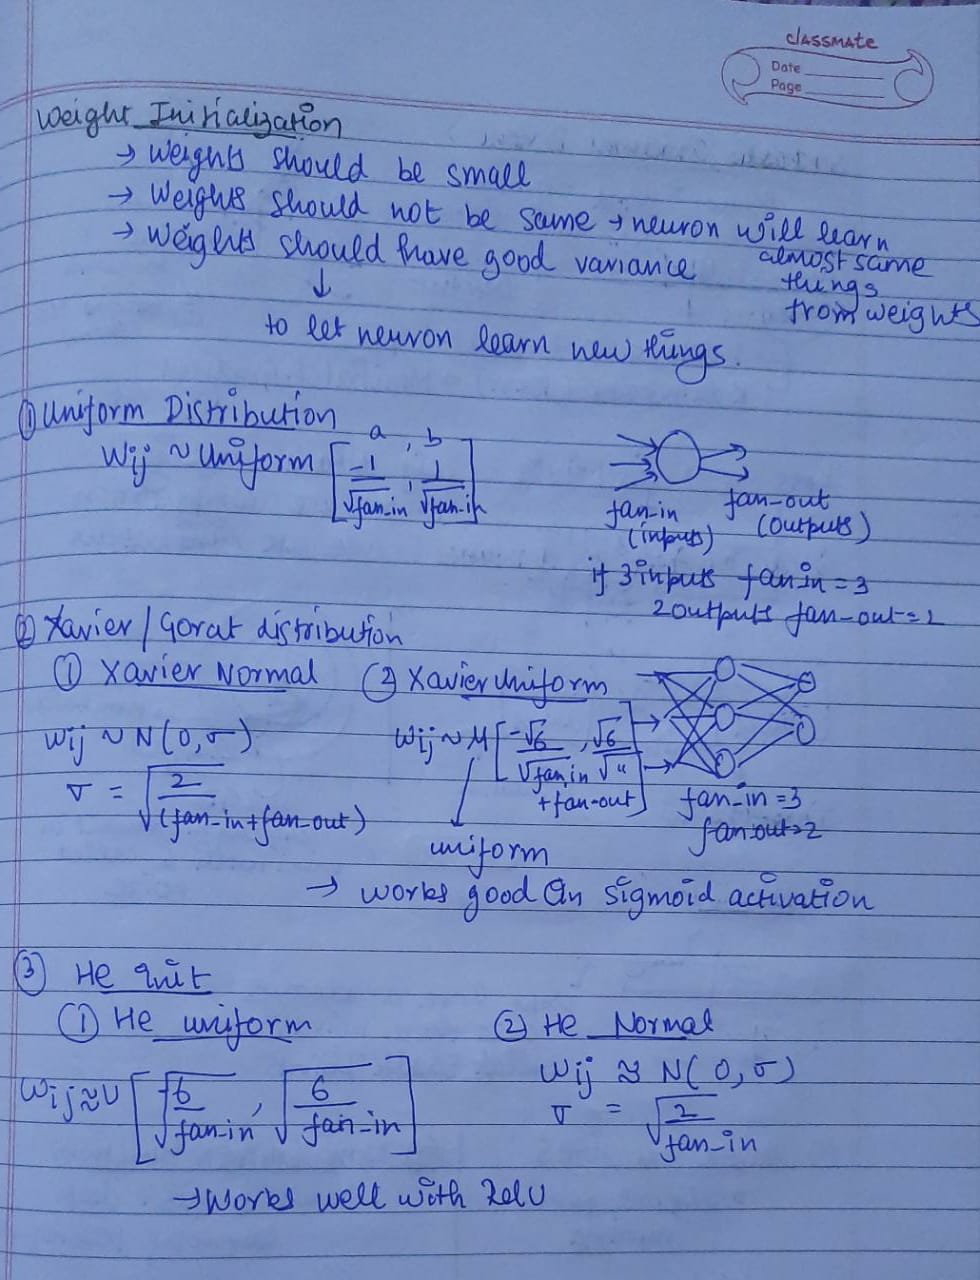 classmate
Date
Page
Weight Initialization
→ Weights should be small
→ Weights should not be same → neuron will learn almost same things from weights
→ Weights should have good variance
↓
to let neuron learn new things.
① Uniform Distribution
a , b
Wij ~ Uniform [-1/√fan-in , 1/√fan-in]
fan-in (inputs)
fan-out (outputs)
if 3 inputs fan in = 3
2 outputs fan-out = 2
② Xavier / Gorat distribution
① Xavier Normal ② Xavier Uniform
Wij ~ N(0, σ)
σ = √(2/(fan-in + fan-out))
Wij ~ U [-√6/√fan-in + fan-out , √6/√"]
uniform
fan-in = 3
fan-out = 2
→ works good in sigmoid activation
③ He Init
① He uniform ② He Normal
Wij ≈ U [√(-6/fan-in) , √(6/fan-in)]
Wij ≈ N(0, σ)
σ = √(2/fan-in)
→ Works well with RelU